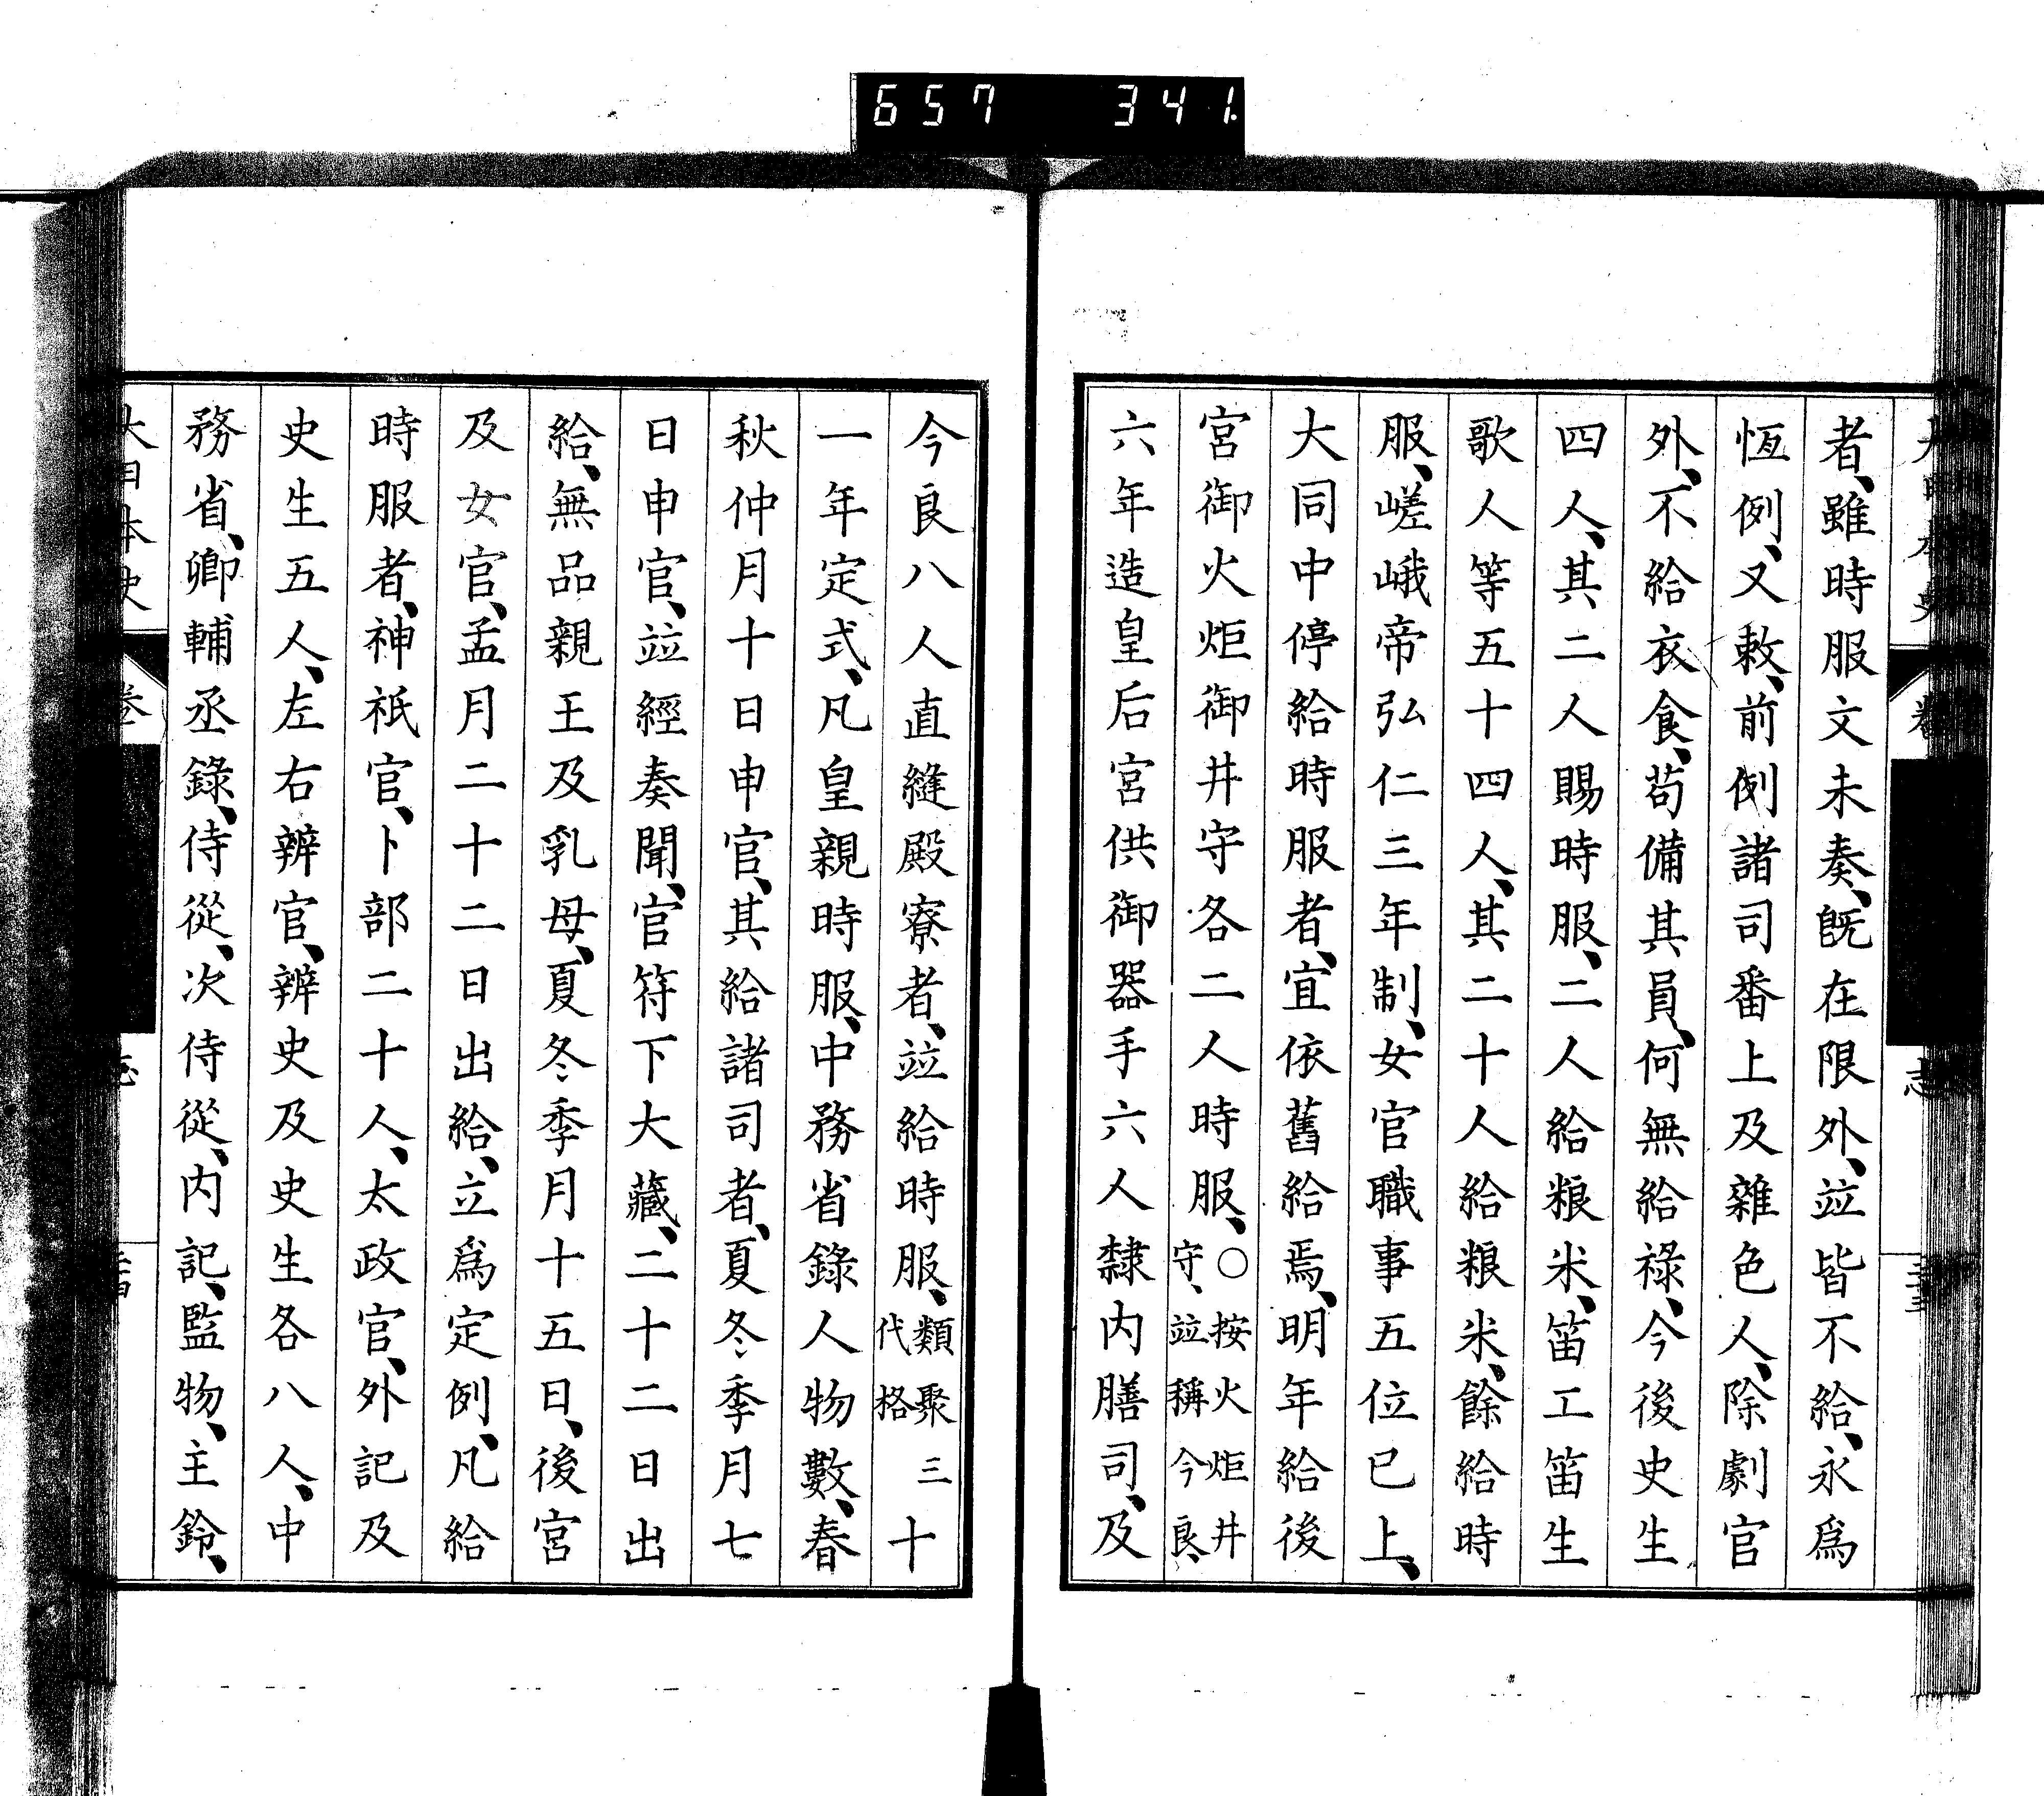 657 341.
者、雖時服文未奏、既在限外、竝皆不給、永爲
恆例、又敕、前例諸司番上及雜色人、除劇官
外、不給衣食、苟備其員、何無給祿、今後史生
四人、其二人賜時服、二人給粮米、笛工笛生
歌人等五十四人、其二十人給粮米、餘給時
服、嵯峨帝弘仁三年制、女官職事五位已上、
大同中停給時服者、宜依舊給焉、明年給後
宮御火炬御井守各二人時服、○按火炬井守、竝稱今良、
六年造皇后宮供御器手六人隸内膳司、及
今良八人直縫殿寮者、竝給時服、類聚三代格
十一年定式、凡皇親時服、中務省錄人物數、春
秋仲月十日申官、其給諸司者、夏冬季月七
日申官、竝經奏聞、官符下大藏、二十二日出
給、無品親王及乳母、夏冬季月十五日、後宮
及女官、孟月二十二日出給、立爲定例、凡給
時服者、神祇官、卜部二十人、太政官、外記及
史生五人、左右辨官、辨史及史生各八人、中
務省、卿輔丞錄、侍從、次侍從、内記、監物、主鈴、
大日本史 卷 志